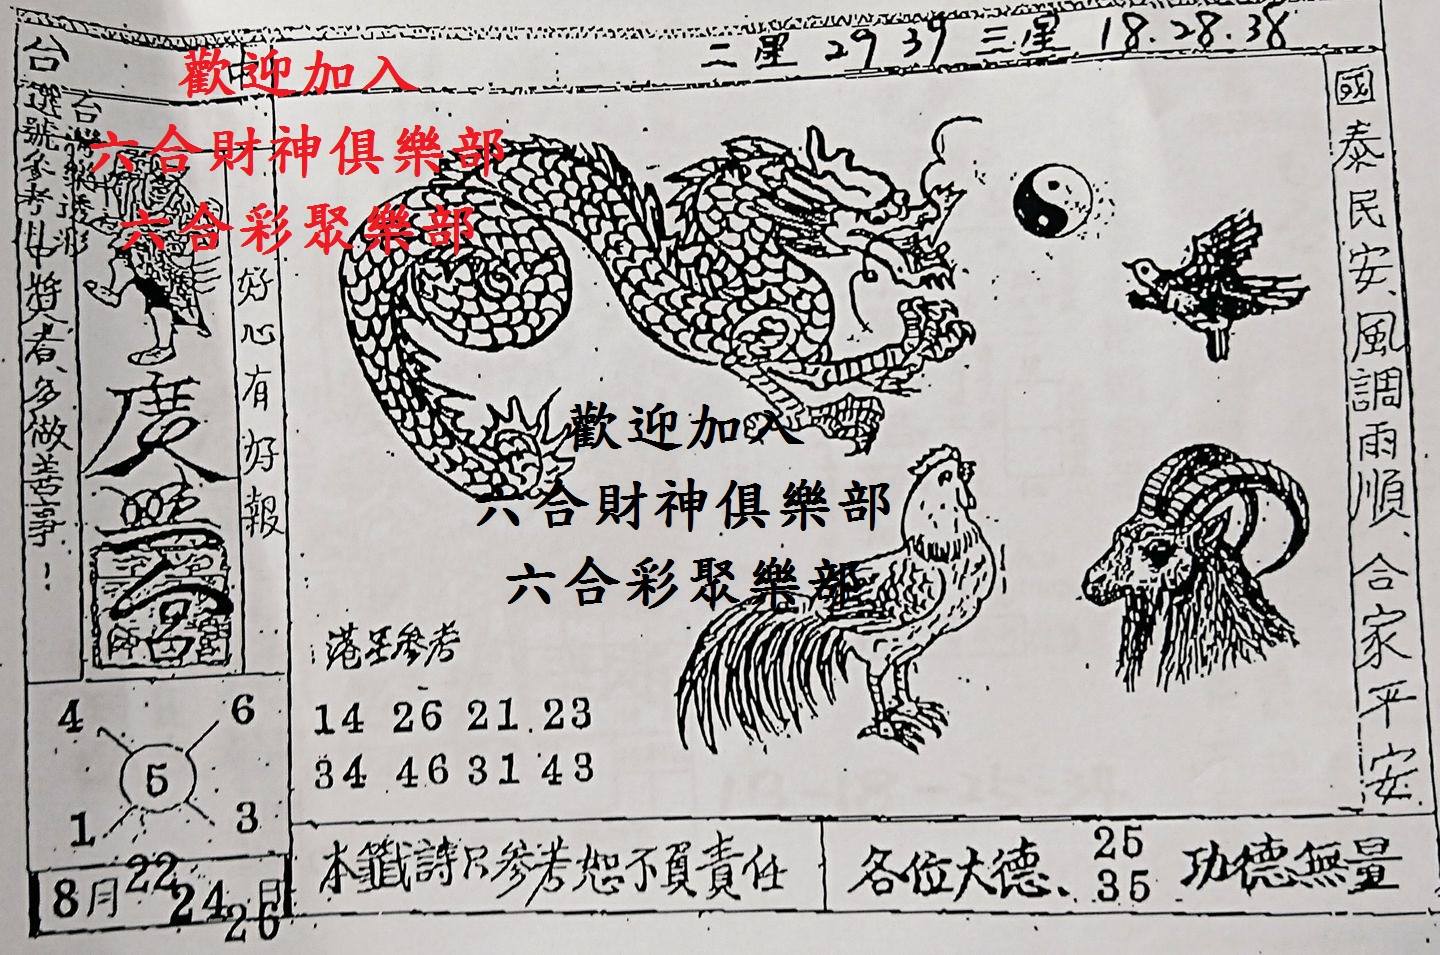 二星 29 39 三星 18.28.38
歡迎加入
六合財神俱樂部
六合彩聚樂部
國泰民安、風調雨順、合家平安
中獎者、多做善事!
好心有好報
廣
歡迎加入
六合財神俱樂部
六合彩聚樂部
港 參考
14 26 21 23
34 46 31 43
4 6
5
1 3
8月 22 24 26 日
本籤詩只參考恕不負責任
各位大德、25 35 功德無量